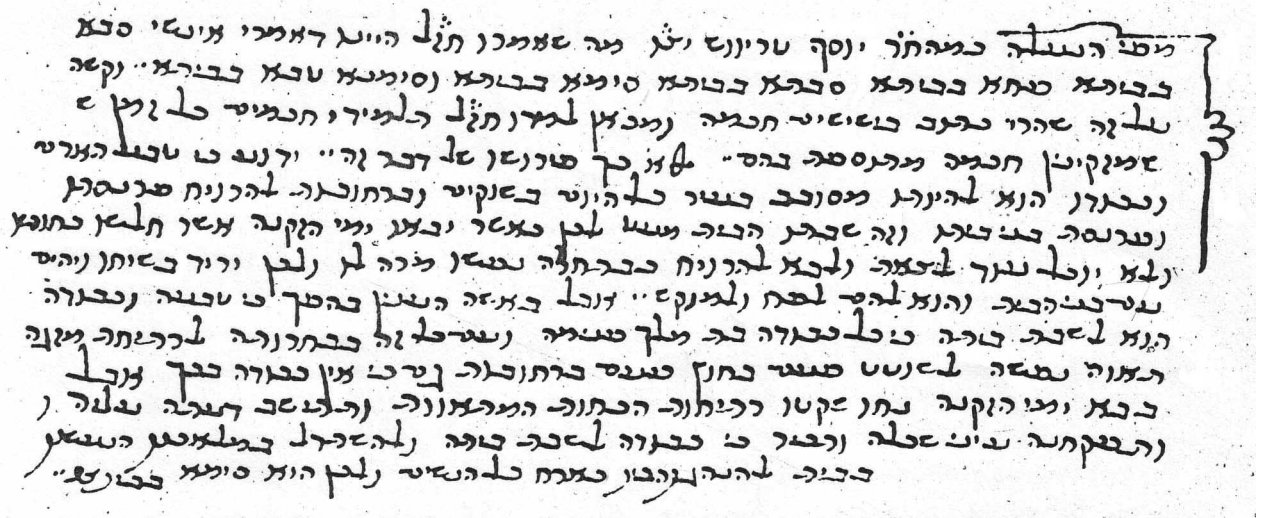 מפי המעלה כמהח״ר יוסף טריווש יצ״ו מה שאמרו חז״ל היינו דאמרי אינשי סבא
בביתא פאחא בביתא סבתא בביתא סימא בביתא וסימנא טבא בביתא·· וקשה
על זה שהרי כתוב בישישים חכמה ומכאן למדו חז״ל תלמידי חכמים כל זמן ש
שמזקינין חכמה מתוספת בהם·· אלא כך פירושו של דבר זה·· ידוע כי טבע האדם
וכבודו הוא להיות מסובב בעיר כל היום בשוקים וברחובות להרויח פרנסתו
ופרנסת בני ביתו וזה שבתו הבית מעט לכן כאשר יבאו ימי הזקנה אשר חלש כחו
ולא יוכל עוד לצאת ולבא להרויח כבתחלה נפשו מרה לו ולכן יריד בשיחו ויהים
עם בני הבית והוא להם לפח ולמוקש·· אבל באשה הענין בהפך כי טבעה וכבודה
הוא לשבת ביתה כי כל כבודה בת מלך פנימה ועם כל זה בבחרותה לרתיחת מזגה
תאוה נפשה לשוטט פעם בחוץ פעם ברחובות גם כי אין כבודה בכך אבל
בבא ימי הזקנה נחו שקטו רתיחות הכחות המתאוות ותתישב דעתה עליה ו
ותפקחנה עיני שכלה ותבין כי כבודה לשבת ביתה ולהשתדל במלאכת
בבית כארח כל הנשים ולכן היא סימא בביתא··